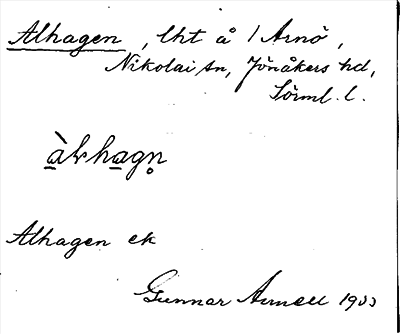 Alhagen, lht å /Arnö,
Nikolai sn, Jönåkers hd,
Sörml. l.
àlhagn̥
Alhagen ek
Gunnar Arnell 1933